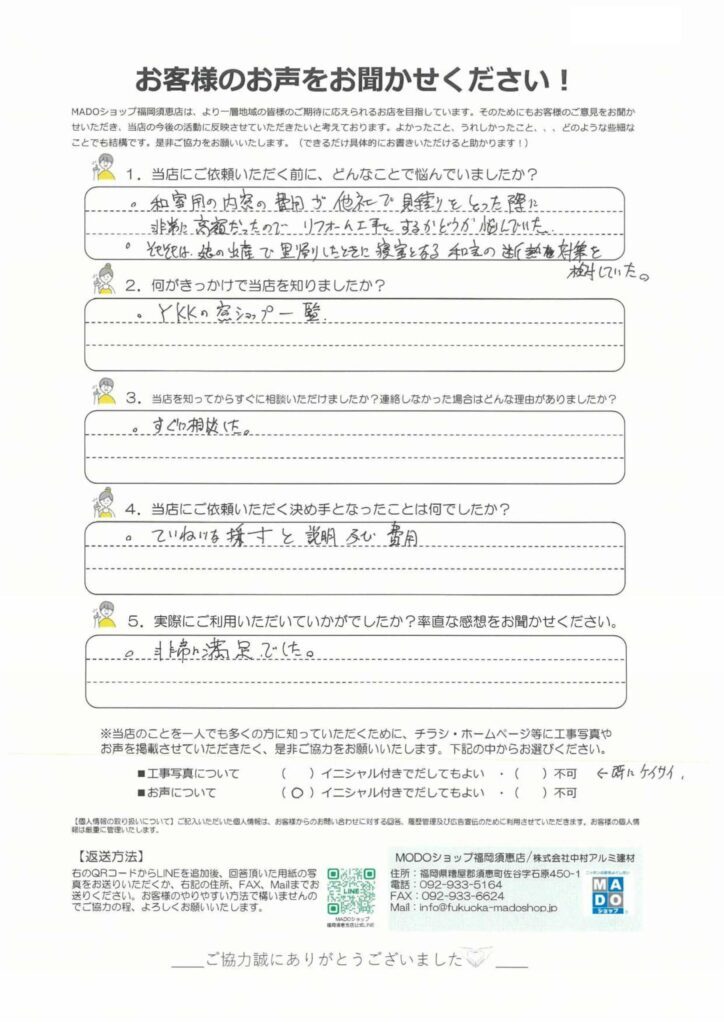 お客様のお声をお聞かせください！
MADOショップ福岡須恵店は、より一層地域の皆様のご期待に応えられるお店を目指しています。そのためにもお客様のご意見をお聞か
せいただき、当店の今後の活動に反映させていただきたいと考えております。よかったこと、うれしかったこと、、、どのような些細な
ことでも結構です。是非ご協力をお願いいたします。（できるだけ具体的にお書きいただけると助かります！）
1．当店にご依頼いただく前に、どんなことで悩んでいましたか？
。和室用の内窓の費用が他社で見積りをとった際に
非常に高額だったので リフォーム工事をするかどうか悩んでいた。
。そもそもは、娘の出産で里帰りしたときに寝室となる和室の断熱対策を
検討していた。
2．何がきっかけで当店を知りましたか？
。YKKの窓ショップ一覧
3．当店を知ってからすぐに相談いただけましたか？連絡しなかった場合はどんな理由がありましたか？
。すぐに相談した。
4．当店にご依頼いただく決め手となったことは何でしたか？
。ていねいな採寸と説明及び費用
5．実際にご利用いただいていかがでしたか？率直な感想をお聞かせください。
。非常に満足でした。
※当店のことを一人でも多くの方に知っていただくために、チラシ・ホームページ等に工事写真や
お声を掲載させていただきたく、是非ご協力をお願いいたします。下記の中からお選びください。
■工事写真について （ ）イニシャル付きでだしてもよい ・（ ）不可 ←既にケイサイ.
■お声について （○）イニシャル付きでだしてもよい ・（ ）不可
【個人情報の取り扱いについて】ご記入いただいた個人情報は、お客様からのお問い合わせに対する回答、履歴管理及び広告宣伝のために利用させていただきます。お客様の個人情
報は厳重に管理いたします。
【返送方法】
右のQRコードからLINEを追加後、回答頂いた用紙の写
真をお送りいただくか、右記の住所、FAX、Mailまでお
送りください。お客様のやりやすい方法で構いませんの
でご協力の程、よろしくお願いいたします。
LINE
MADOショップ
福岡須恵店公式LINE
MADOショップ福岡須恵店/株式会社中村アルミ建材
住所：福岡県糟屋郡須恵町佐谷字石原450-1
電話：092-933-5164
FAX：092-933-6624
Mail：info@fukuoka-madoshop.jp
MADO
ショップ
ご協力誠にありがとうございました